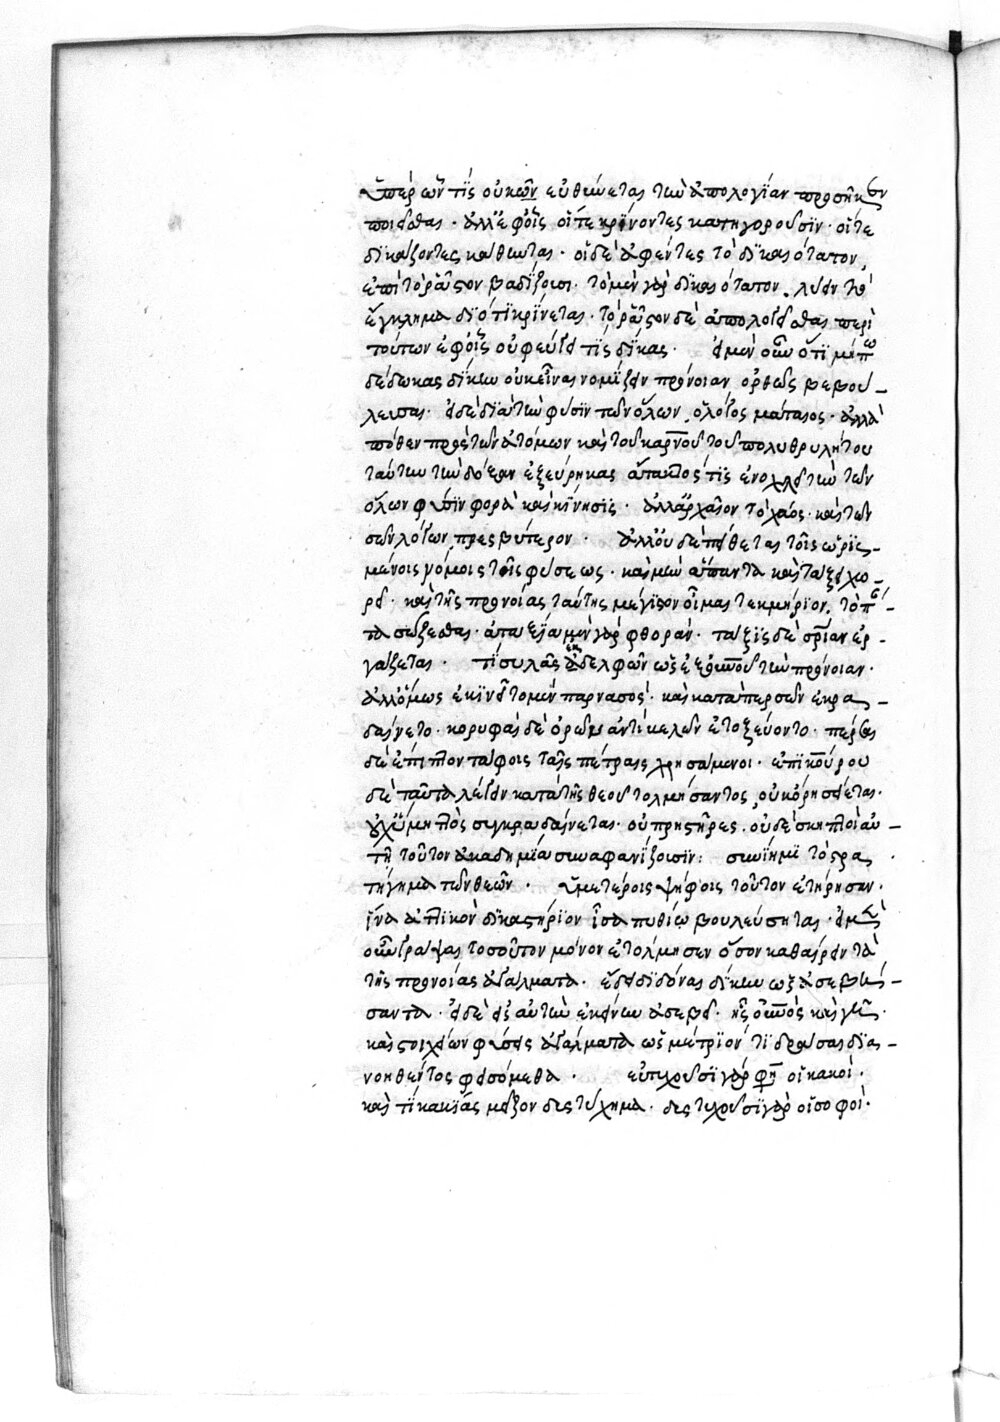 ὑπὲρ ὧν τὶς οὐκ ὢν εὐθύνεται τὴν ἀπολογίαν προσῆκεν
ποιεῖσθαι · ἀλλ' ἐφ' οἷς οἵ τε κρίνοντες κατηγοροῦσιν · οἵ τε
δικάζοντες κάθηνται · οἱ δὲ ἀφέντες τὸ δικαιότατον,
ἐπὶ τὸ ῥᾷστον βαδίζουσι · τὸ μὲν γὰρ δικαιότατον, λύειν τὸ
ἔγκλημα διότι κρίνεται · τὸ ῥᾷστον δὲ ἀπολογεῖσθαι περὶ
τούτων ἐφ' οἷς οὐ φεύγει τίς δίκας · εἰ μὲν οὖν ὅτι μήπω
δέδωκας δίκην οὐκ εἶναι νομίζειν πρόνοιαν ὀρθῶς βεβού-
λευσαι · εἰ δὲ διὰ τὴν φύσιν τῶν ὅλων, ὁ λόγος μάταιος · ἀλλὰ
πόθεν πρὸς τῶν ἀτόμων καὶ τοῦ κενοῦ τοῦ πολυθρυλήτου
ταύτην τὴν δόξαν ἐξεύρηκας ἄτακτός τις ἐνοχλεῖ τὴν τῶν
ὅλων φύσιν φορὰ καὶ κίνησις · ἀλλ' ἀρχαῖον τὸ χάος · καὶ τῶν
σῶν λόγων πρεσβύτερον · ἀλλ' οὐδὲ πείθεται τοῖς ὡρις-
μένοις νόμοις τῆς φύσεως · καὶ μὴν ἅπαντα κατὰ τάξιν χω-
ρεῖ · καὶ τῆς προνοίας ταύτης μέγιστον οἶμαι τεκμήριον, τὸ πάν-
τα σώζεσθαι · ἀταξία μὲν γὰρ φθοράν · τάξις δὲ σωτηρίαν ἐρ-
γάζεται · τί συλᾷς ἐκ δελφῶν ὦ ἐπίκουρε τὴν πρόνοιαν ·
ἀλλ' ὅμως ἐκινεῖτο μὲν παρνασός · καὶ κατὰ περσῶν ἐκρα-
δαίνετο · κορυφαὶ δὲ ὀρῶν ἀντὶ βελῶν ἐτοξεύοντο · πέρσαι
δὲ ἐπιπλον τάφοις ταῖς πέτραις χρησάμενοι · ἐπικούρου
δὲ ταῦτα λέγειν κατὰ τῆς θεοῦ τολμήσαντος, οὐκ ὄρη σείεται ·
οὐχ ὑμηττὸς συγκραδαίνεται · οὐ πρηστῆρες, οὐδὲ σκηπτοὶ αὐ-
τῇ τοῦτον ἀκαδημίᾳ συναφανίζουσιν : συνίημι τὸ στρα
τήγημα τῶν θεῶν · ὑμετέραις ψήφοις τοῦτον ἐτήρησαν ·
ἵνα ἀττικὸν δικαστήριον ἴσα πυθίῳ βουλεύσηται · εἰ μὲν
οὖν γράψας τοσοῦτον μόνον ἐτόλμησεν ὅσον καθαιρεῖν τὰ
τῆς προνοίας ἀγάλματα · ἔδει διδόναι δίκην ὡς ἀσεβή-
σαντα · εἰ δὲ εἰς αὐτὴν ἐκείνην ἀσεβεῖ · ἧς οὐρανὸς καὶ γῆ ·
καὶ στοιχείων φύσεις ἀγάλματα ὡς μέτριόν τι δρῶντος δια-
νοηθέντος φεισόμεθα · εὐτυχοῦσι γὰρ φησὶ οἱ κακοὶ ·
καὶ τί κακίας μεῖζον δυστύχημα · δυστυχοῦσι γὰρ οἱ σοφοὶ ·